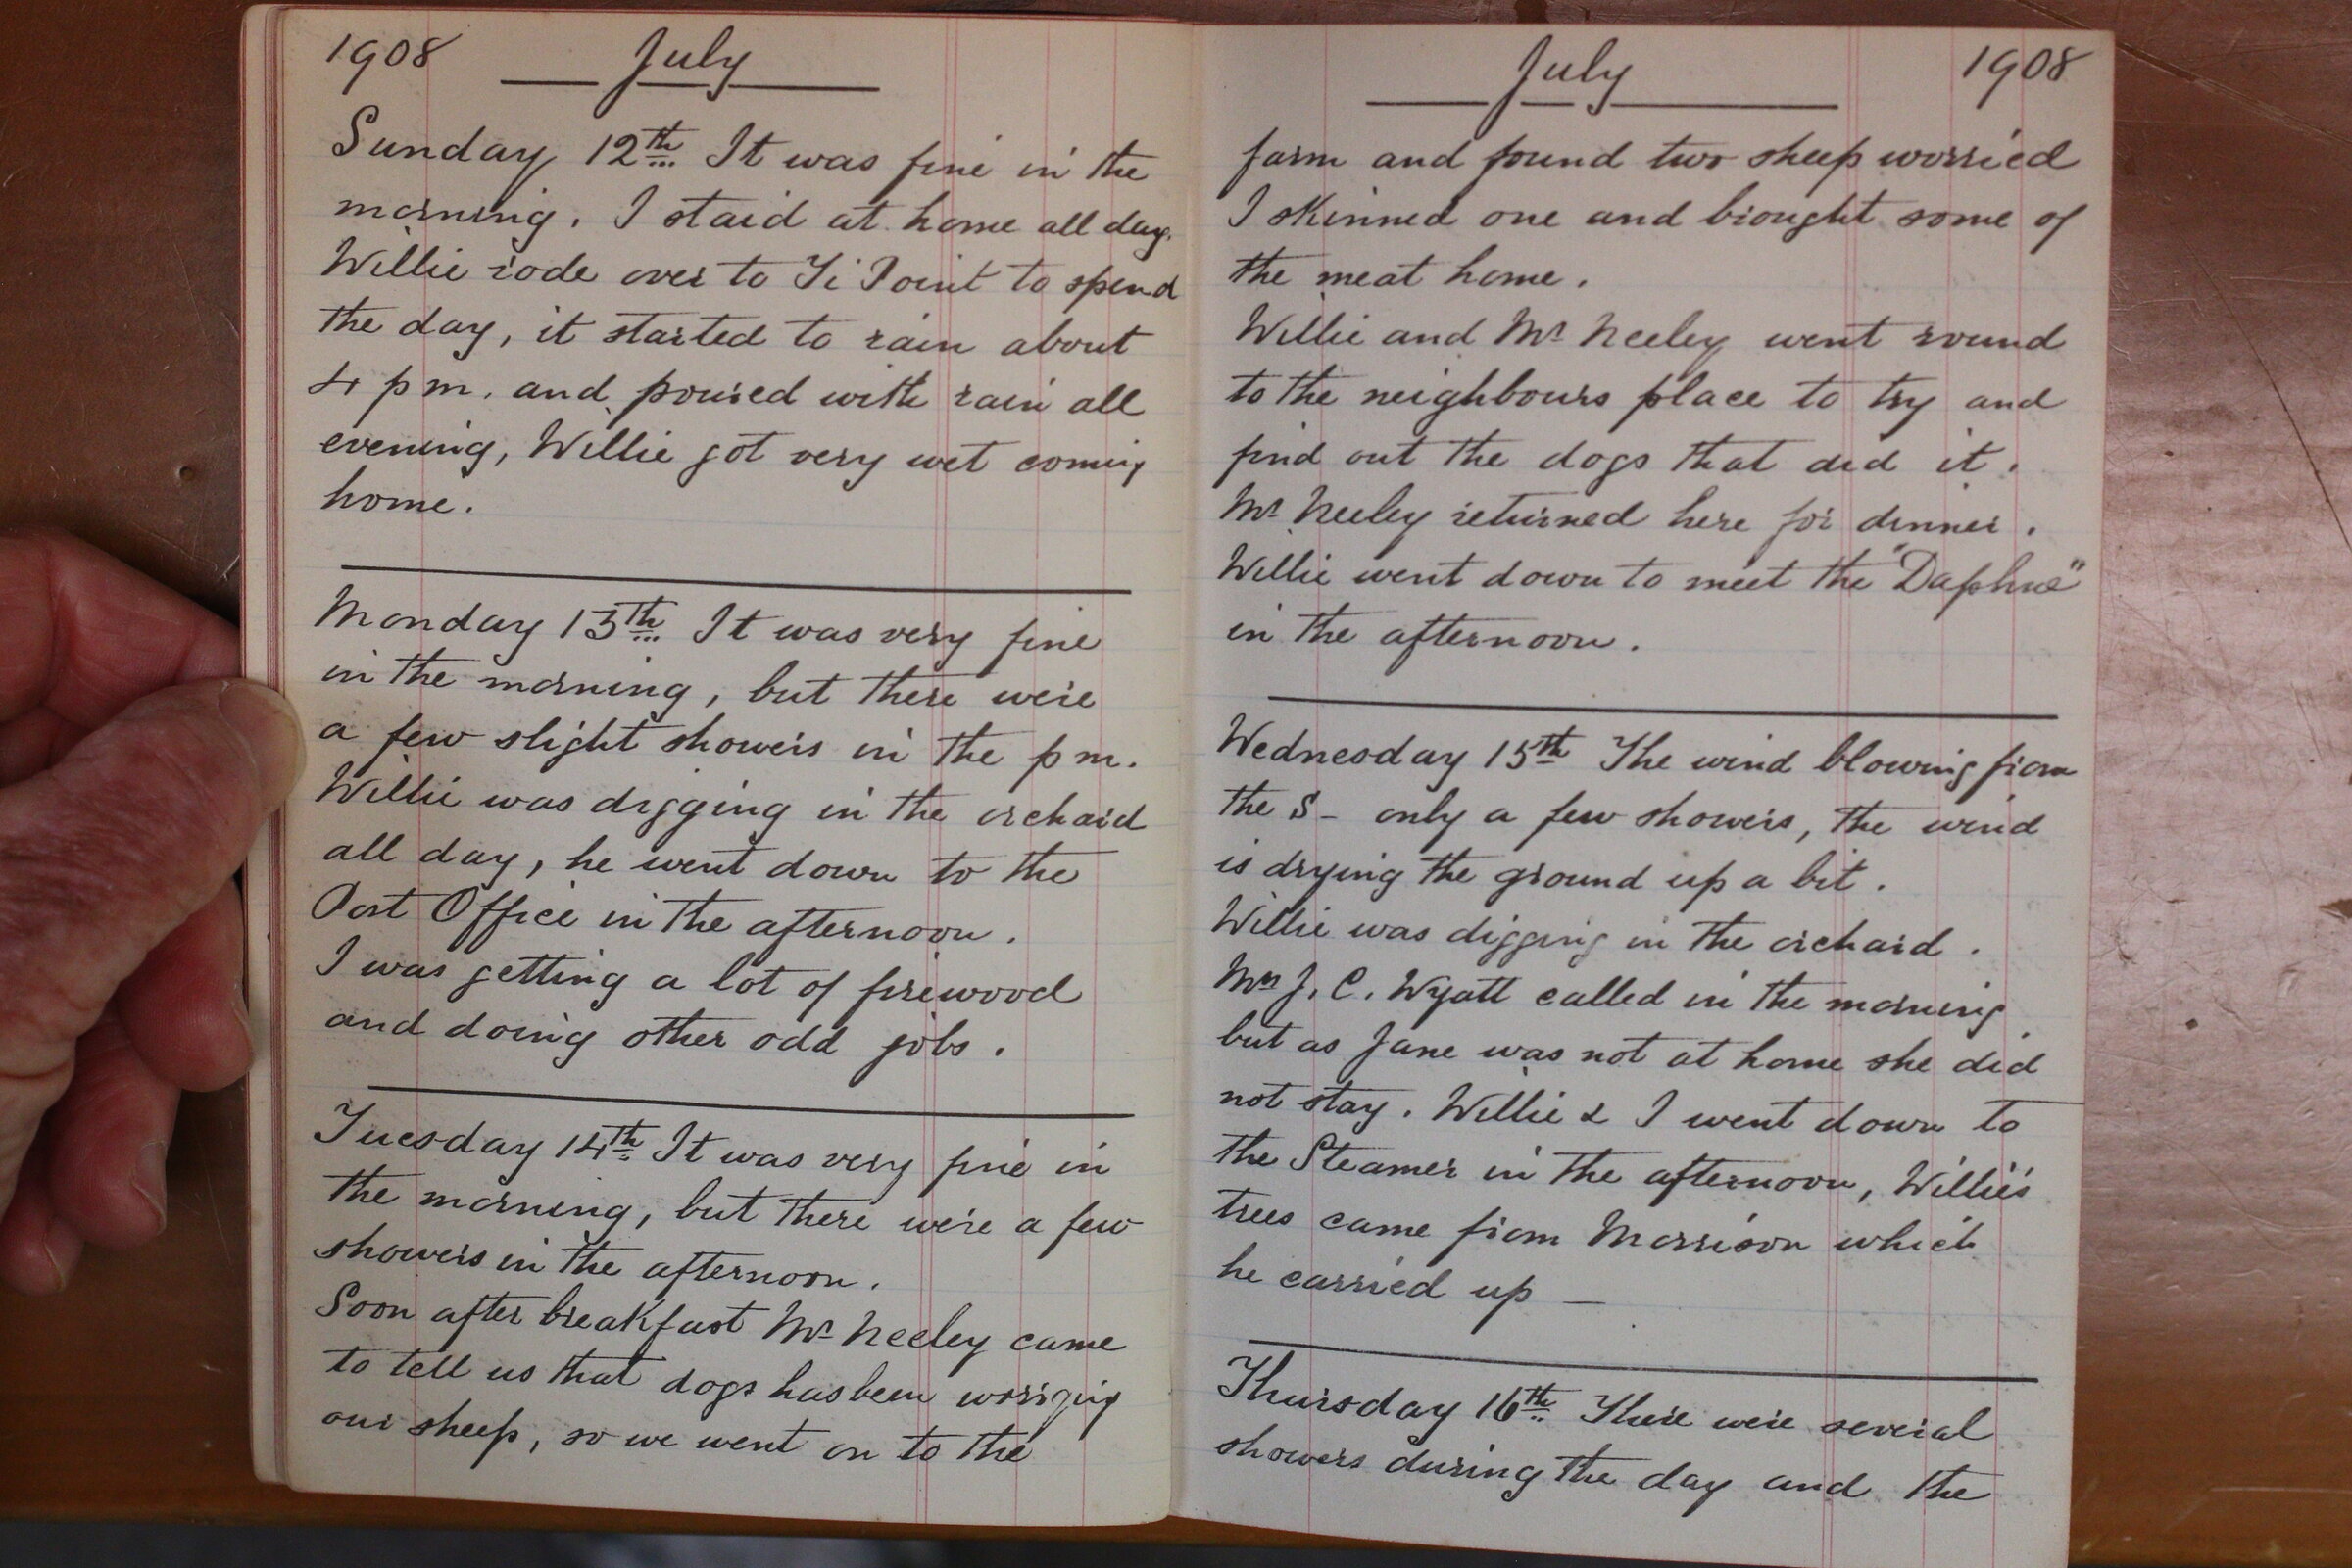 1908 July
Sunday 12th It was fine in the
morning. I staid at home all day.
Willie rode over to Ti Point to spend
the day, it started to rain about
4 p m. and poured with rain all
evening, Willie got very wet coming
home.
Monday 13th It was very fine
in the morning, but there were
a few slight showers in the p m.
Willie was digging in the orchard
all day, he went down to the
Post Office in the afternoon.
I was getting a lot of firewood
and doing other odd jobs.
Tuesday 14th It was very fine in
the morning, but there were a few
showers in the afternoon.
Soon after breakfast Mr Neeley came
to tell us that dogs has been worrying
our sheep, so we went on to the
July 1908
farm and found two sheep worried
I skinned one and brought some of
the meat home.
Willie and Mr Neeley went round
to the neighbours place to try and
find out the dogs that did it.
Mr Neeley returned here for dinner.
Willie went down to meet the "Daphne"
in the afternoon.
Wednesday 15th The wind blowing from
the S - only a few showers, the wind
is drying the ground up a bit.
Willie was digging in the orchard.
Mrs J. C. Wyatt called in the morning
but as Jane was not at home she did
not stay. Willie & I went down to
the Steamer in the afternoon, Willie's
trees came from Morrison which
he carried up —
Thursday 16th There were several
showers during the day and the